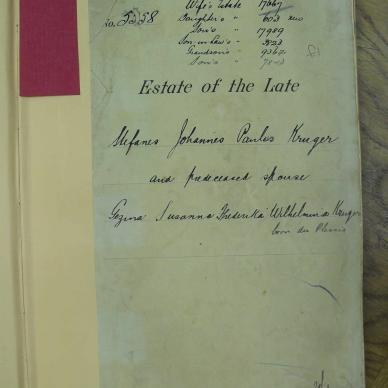 Wife's Estate 17667
No. 5558 Daughter's " 603
Son's " 17989
Son-in-law's " 
Grandson's " 9362
Son's "
Estate of the Late
Stefanes Johannes Paulus Kruger
and predeceased spouse
Gezina Susanna Frederika Wilhelmina Kruger
born du Plessis